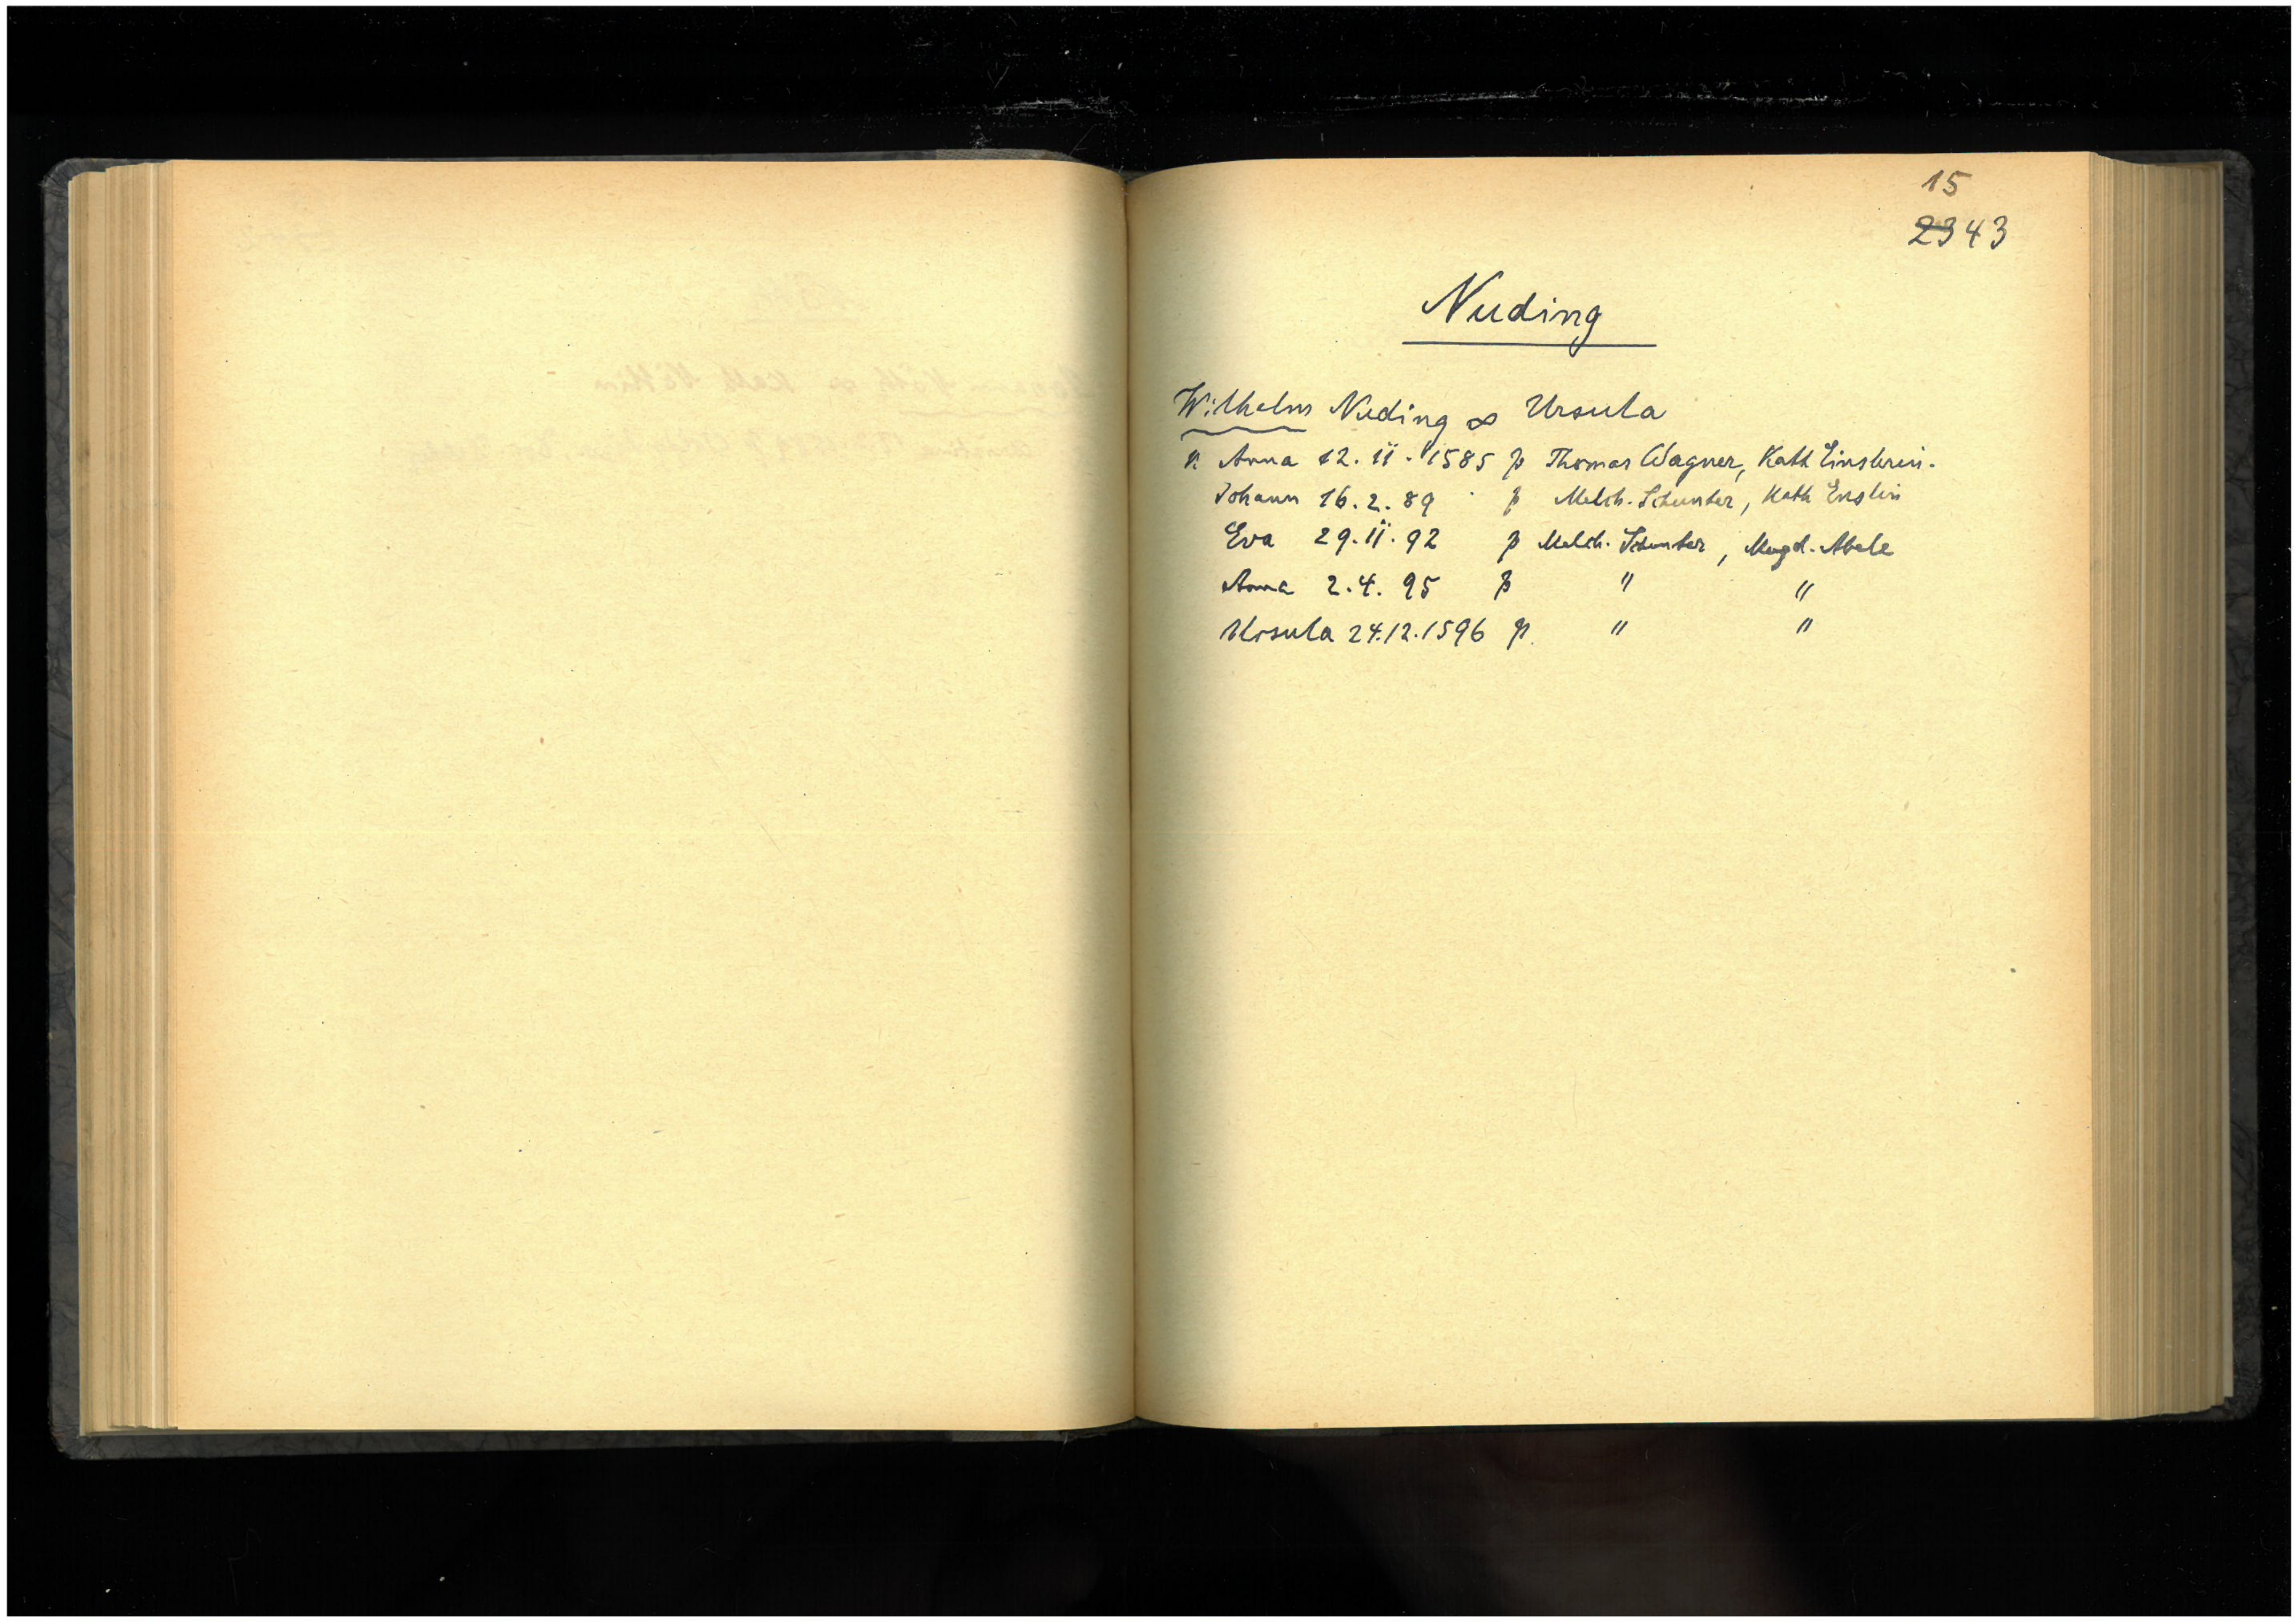 15
2343
Nuding
Wilhelm Nuding ∞ Ursula
K Anna 12.11.1585 p Thomas Wagner, Kath
Johann 16.2.89 p Melch. Schunter, Kath Enslin
Eva 29.11.92 p Melch. Schunter, Magd. Abele
Anna 2.4.95 p " "
Ursula 24.12.1596 p. " "